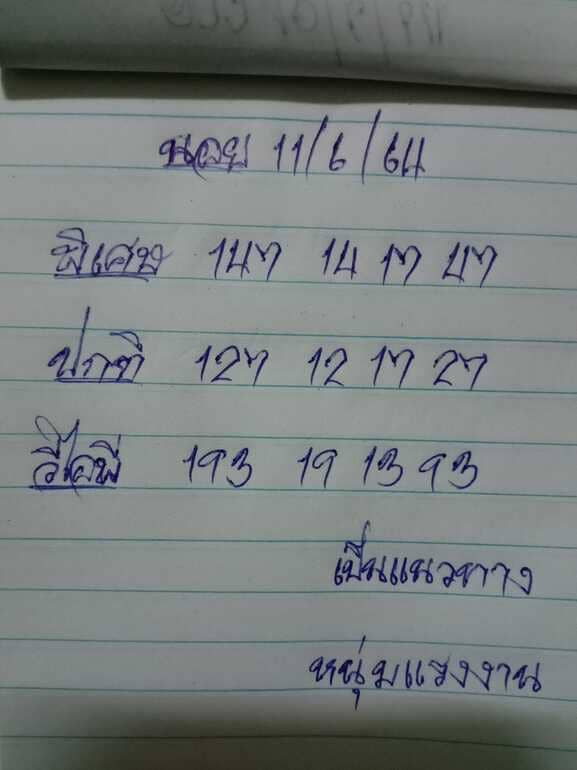 นอย 11/6/64
พิเศษ 147 14 17 47
ปกติ 127 12 17 27
วีไอพี 193 19 13 93
เป็นแนวทาง
หนุ่มแรงงาน